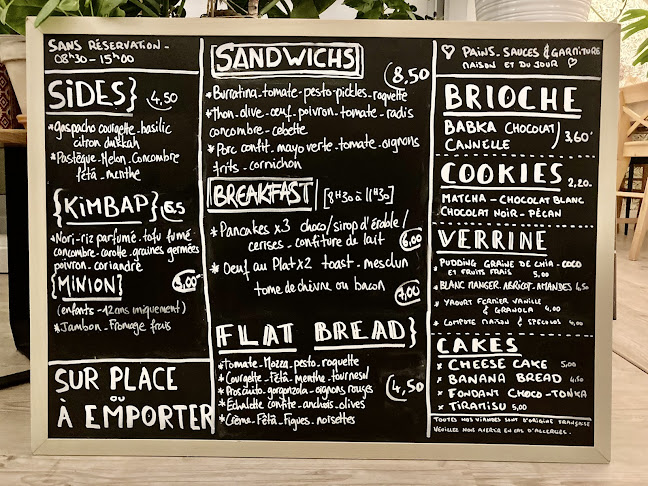 SANS RÉSERVATION -
08H30 - 15H00
SIDES} 4,50
*gaspacho courgette - basilic
citron dukkah
*Pastèque - Melon - Concombre
féta - menthe
{KIMBAP} 6.5
*Nori - riz parfumé - tofu fumé
concombre - carotte - graines germées
poivron - coriandre
{MINION} 5,00
(enfants -12ans uniquement)
*Jambon - Fromage frais
SUR PLACE
OU
À EMPORTER
SANDWICHS
8,50
*Burratina - tomate - pesto - pickles - roquette
*thon - olive - oeuf - poivron - tomate - radis
concombre - cebette
*Porc confit - mayo verte - tomate - oignons
frits - cornichon
BREAKFAST [8H30 à 11H30]
*Pancakes x3 choco/sirop d'érable/
cerises - confiture de lait 6,00
*Oeuf au Plat x2 toast - mesclun
tome de chèvre ou bacon 7,00
FLAT BREAD}
*Tomate - Mozza - pesto - roquette
*Courgette - Féta - menthe - tournesol
*Prosciuto - gorgonzola - oignons rouges
*Echalotte confite - anchois - olives
*Crème - Féta - Figues - noisettes
4,50
♡ PAINS, SAUCES & GARNITURE
MAISON ET DU JOUR ♡
BRIOCHE
BABKA CHOCOLAT/
CANNELLE 3,60
COOKIES 2,20.
MATCHA - CHOCOLAT BLANC
CHOCOLAT NOIR - PÉCAN
VERRINE
* PUDDING GRAINE DE CHIA - COCO
ET FRUITS FRAIS 5,00
*BLANC MANGER ABRICOT - AMANDES 4,50
* YAOURT FERMIER VANILLE
& GRANOLA 4,00
* COMPOTE MAISON & SPECULOS 4,00
CAKES
* CHEESE CAKE 5,00
* BANANA BREAD 4,50
* FONDANT CHOCO-TONKA
* TIRAMISU 5,00
TOUTES NOS VIANDES SONT D'ORIGINE FRANÇAISE
VEUILLEZ NOUS AVERTIR EN CAS D'ALLERGIES.